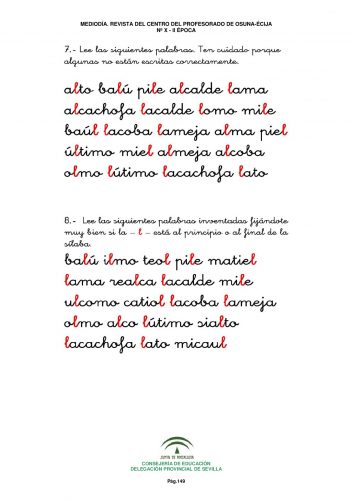 MEDIODÍA. REVISTA DEL CENTRO DEL PROFESORADO DE OSUNA-ÉCIJA
Nº X - II ÉPOCA
7.- Lee las siguientes palabras. Ten cuidado porque
algunas no están escritas correctamente.
alto balú pile alcalde lama
alcachofa lacalde lomo mile
baúl lacoba lameja alma piel
último miel almeja alcoba
olmo lútimo lacachofa lato
8.- Lee las siguientes palabras inventadas fijándote
muy bien si la – l – está al principio o al final de la
sílaba.
balú ilmo teol pile matiel
lama realca lacalde mile
ulcomo catiol lacoba lameja
olmo alco lútimo sialto
lacachofa lato micaul
JUNTA DE ANDALUCIA
CONSEJERÍA DE EDUCACIÓN
DELEGACIÓN PROVINCIAL DE SEVILLA
Pág.149